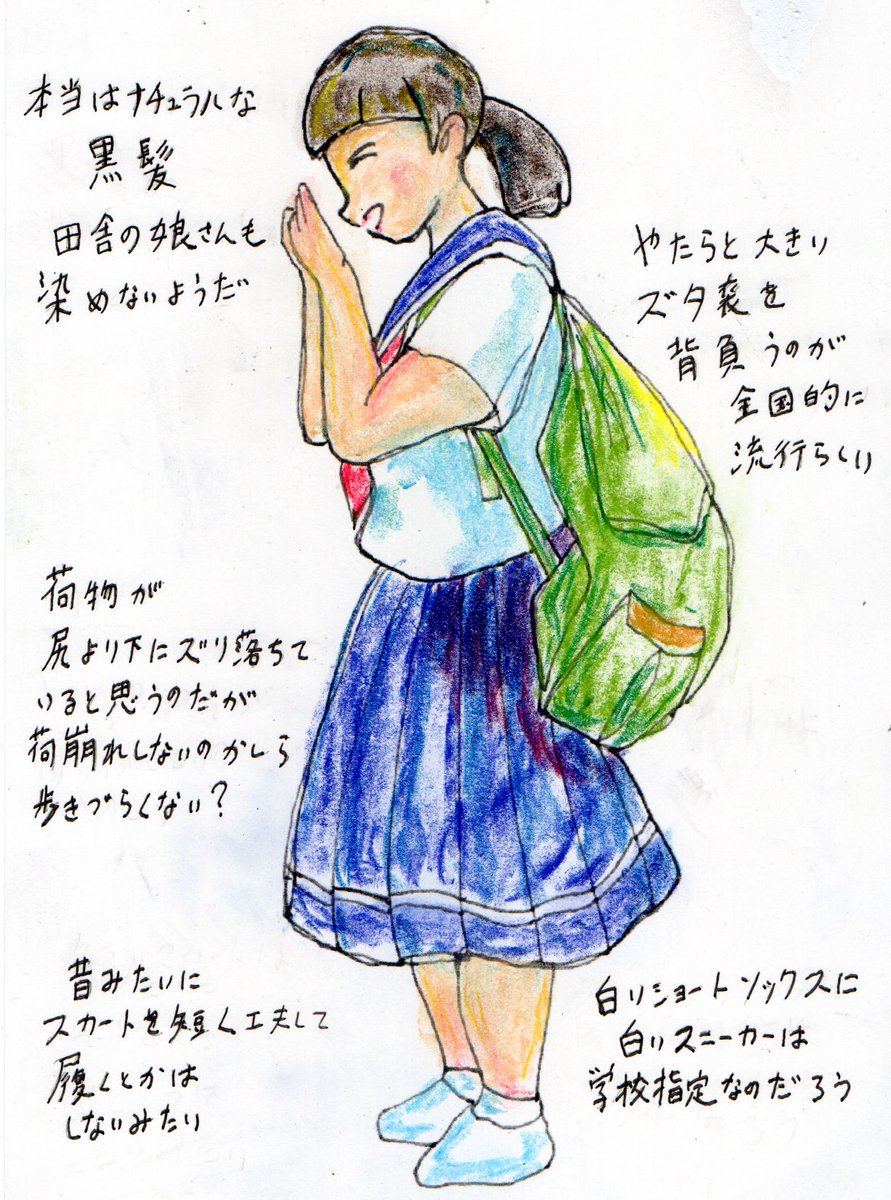 本当はナチュラルな
黒髪
田舎の娘さんも
染めないようだ
やたらと大きい
ズタ袋を
背負うのが
全国的に
流行らしい
荷物が
尻より下にズリ落ちて
いると思うのだが
荷崩れしないのかしら
歩きづらくない?
昔みたいに
スカートを短く工夫して
履くとかは
しないみたい
白いショートソックスに
白いスニーカーは
学校指定なのだろう